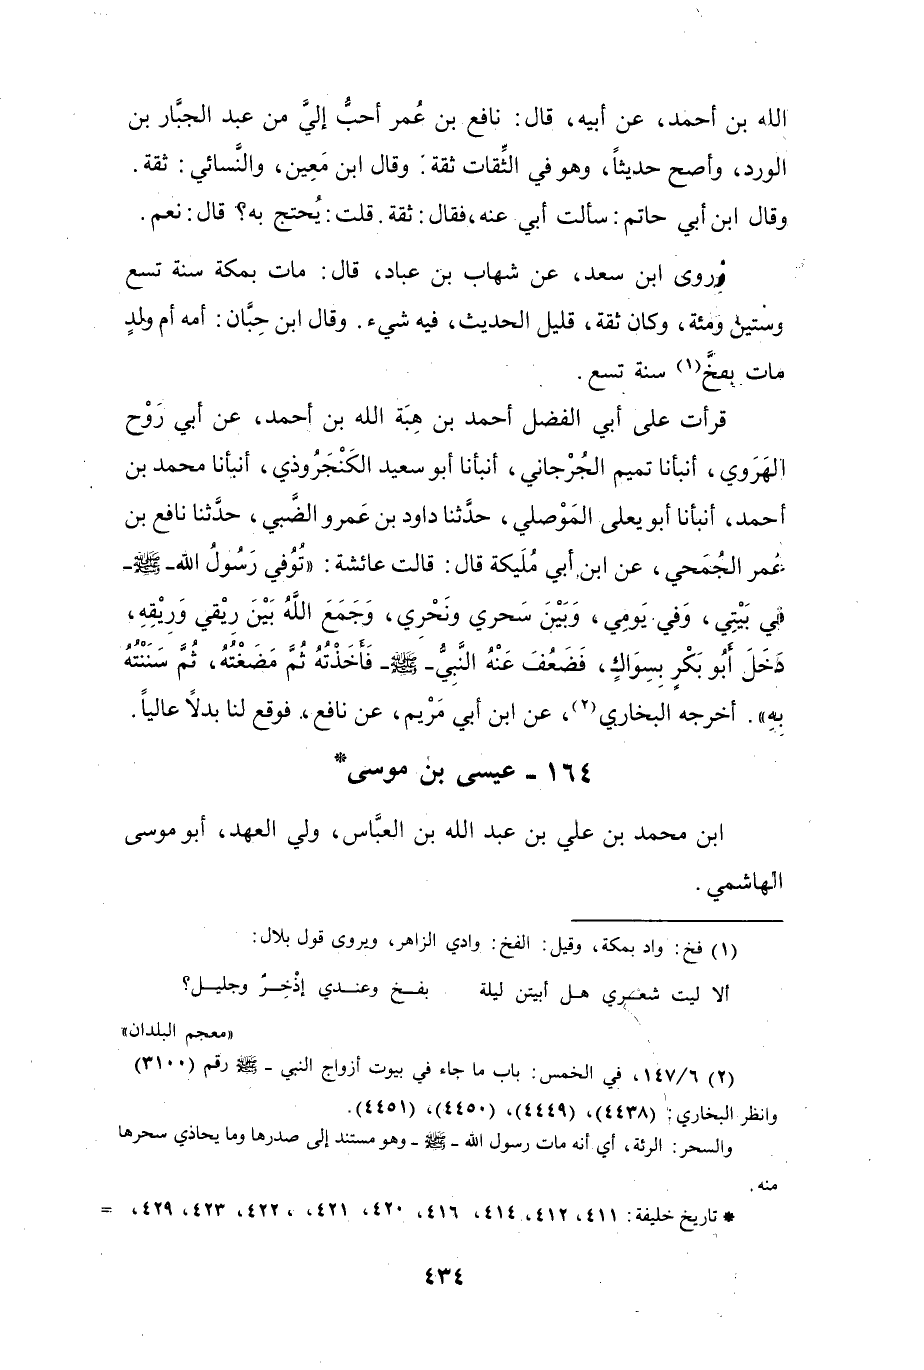 الله بن أحمد، عن أبيه، قال: نافع بن عُمر أحبُّ إليَّ من عبد الجبَّار بن
الورد، وأصح حديثاً، وهو في الثِّقات ثقة. وقال ابن مَعِين، والنَّسائي: ثقة.
وقال ابن أبي حاتم: سألت أبي عنه، فقال: ثقة. قلت: يُحتج به؟ قال: نعم.
وروى ابن سعد، عن شهاب بن عباد، قال: مات بمكة سنة تسع
وستين ومئة، وكان ثقة، قليل الحديث، فيه شيء. وقال ابن حِبَّان: أمه أم ولدٍ
مات بفخَّ(١) سنة تسع.
قرأت على أبي الفضل أحمد بن هِبَة الله بن أحمد، عن أبي رَوْح
الهَرَوي، أنبأنا تميم الجُرْجاني، أنبأنا أبو سعيد الكَنْجَرُوذي، أنبأنا محمد بن
أحمد، أنبأنا أبو يعلى المَوْصلي، حدَّثنا داود بن عَمرو الضَّبي، حدَّثنا نافع بن
عُمر الجُمَحي، عن ابن أبي مُلَيكة قال: قالت عائشة: «تُوُفي رَسُولُ الله ـ ﷺ ـ
في بَيْتِي، وَفي يَومِي، وَبَيْنَ سَحري ونَحْرِي، وَجَمَعَ اللَّهُ بَيْنَ رِيْقي وَرِيْقِهِ،
دَخَلَ أَبُو بَكْرٍ بِسِوَاكٍ، فَضَعُفَ عَنْهُ النَّبيُّ ـ ﷺ ـ فَأَخَذْتُهُ ثُمَّ مَضَغْتُهُ، ثُمَّ سَنَنْتُهُ
بِهِ». أخرجه البخاري(٢)، عن ابن أبي مَرْيم، عن نافع، فوقع لنا بدلاً عالياً.
١٦٤ ـ عيسى بن موسى*
ابن محمد بن علي بن عبد الله بن العبَّاس، ولي العهد، أبو موسى
الهاشمي.
(١) فخ: واد بمكة، وقيل: الفخ: وادي الزاهر، ويروى قول بلال:
ألا ليت شعري هل أبيتن ليلة بفخ وعندي إذْخِرٌ وجليل؟
«معجم البلدان»
(٢) ١٤٧/٦، في الخمس: باب ما جاء في بيوت أزواج النبي ـ ﷺ رقم (٣١٠٠)
وانظر البخاري: (٤٤٣٨)، (٤٤٤٩)، (٤٤٥٠)، (٤٤٥١).
والسحر: الرئة، أي أنه مات رسول الله ـ ﷺ ـ وهو مستند إلى صدرها وما يحاذي سحرها
منه.
* تاريخ خليفة: ٤١١، ٤١٢، ٤١٤، ٤١٦، ٤٢٠، ٤٢١، ، ٤٢٢، ٤٢٣، ٤٢٩، =
٤٣٤